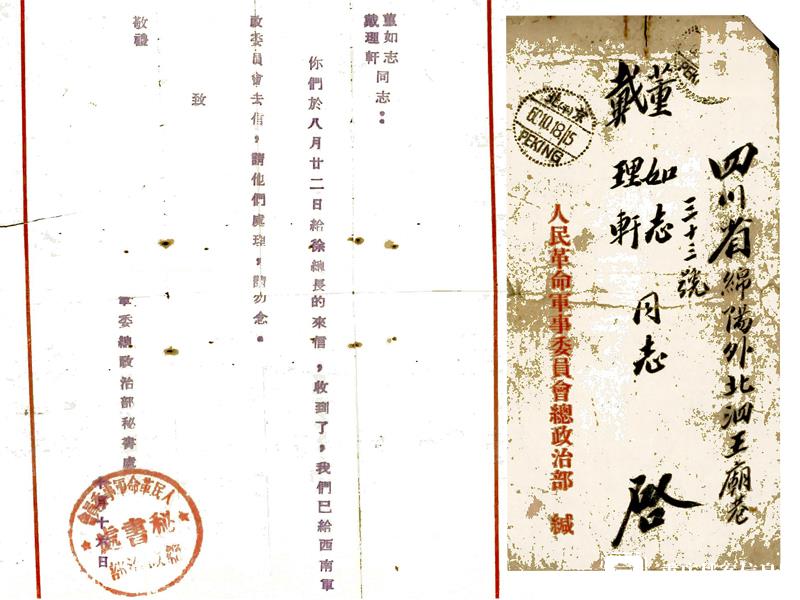 董如志
戴理軒 同志:
你們於八月廿二日給徐總長的來信,收到了,我們已給西南軍
政委員會去信,請他們處理,請勿念。
致
敬禮
軍委總政治部秘書處
十月十六日
人民革命軍事委員會
秘書處
四川省綿陽外北泗王廟巷
三十三號
董如志
戴理軒
同志
啓
人民革命軍事委員會總政治部 緘
北京
PEKING